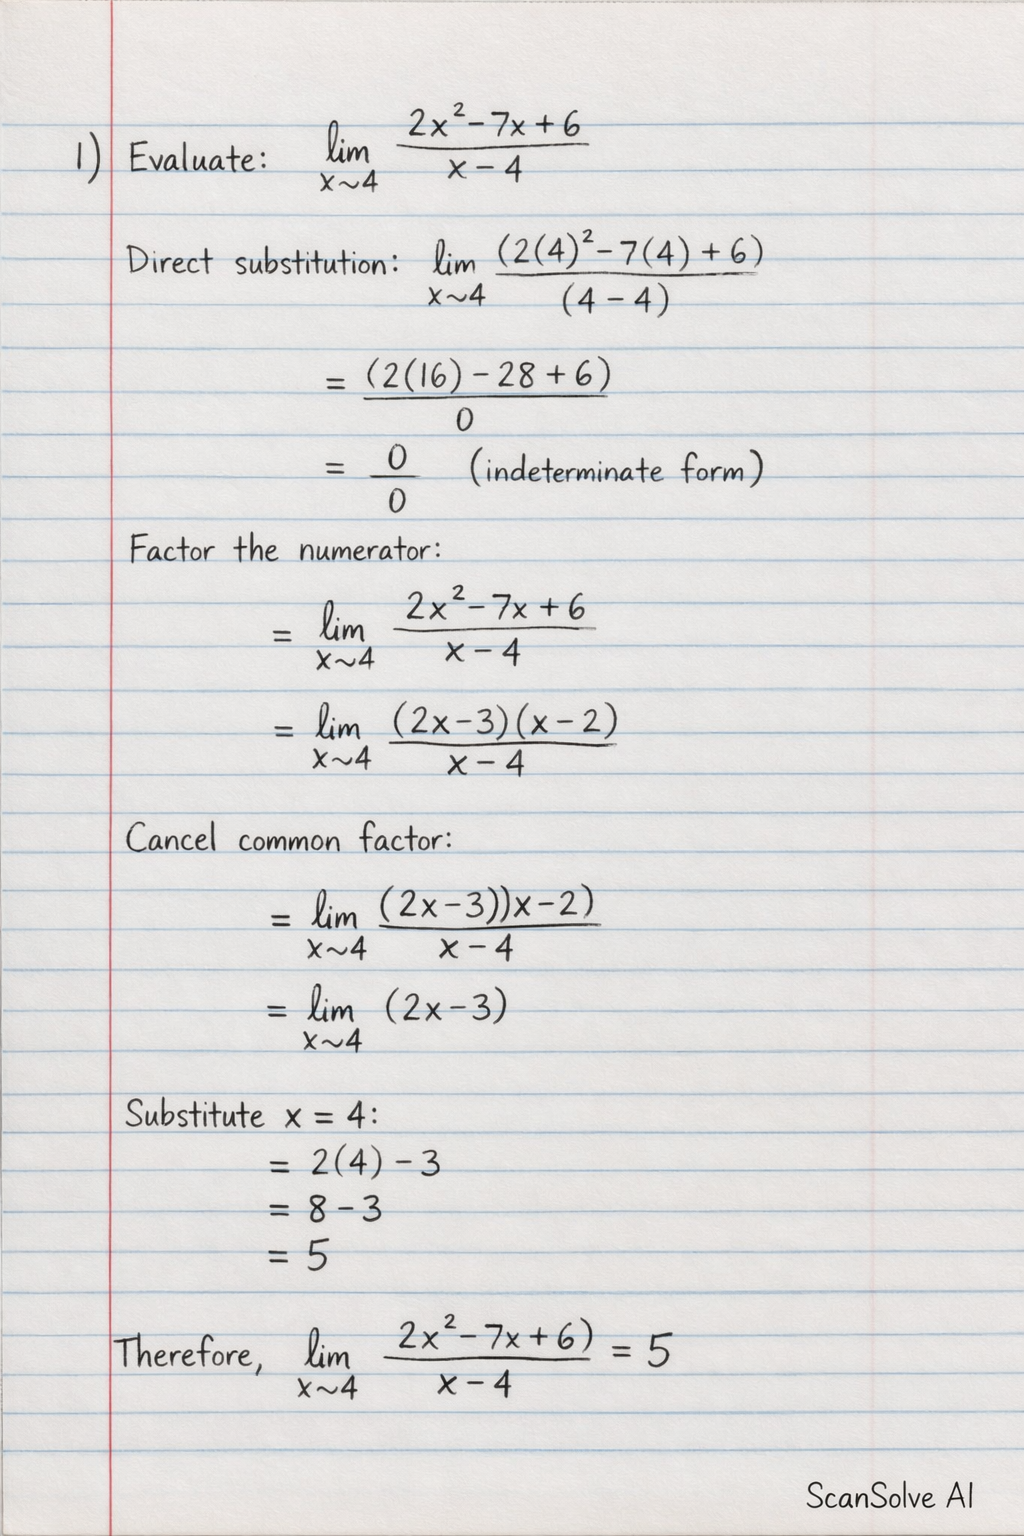 1) Evaluate: lim x~4 (2x² - 7x + 6)/(x - 4)
Direct substitution: lim x~4 (2(4)² - 7(4) + 6)/(4 - 4)
= (2(16) - 28 + 6)/0
= 0/0 (indeterminate form)
Factor the numerator:
= lim x~4 (2x² - 7x + 6)/(x - 4)
= lim x~4 (2x - 3)(x - 2)/(x - 4)
Cancel common factor:
= lim x~4 (2x - 3))x - 2)/(x - 4)
= lim x~4 (2x - 3)
Substitute x = 4:
= 2(4) - 3
= 8 - 3
= 5
Therefore, lim x~4 2x² - 7x + 6)/(x - 4) = 5
ScanSolve AI